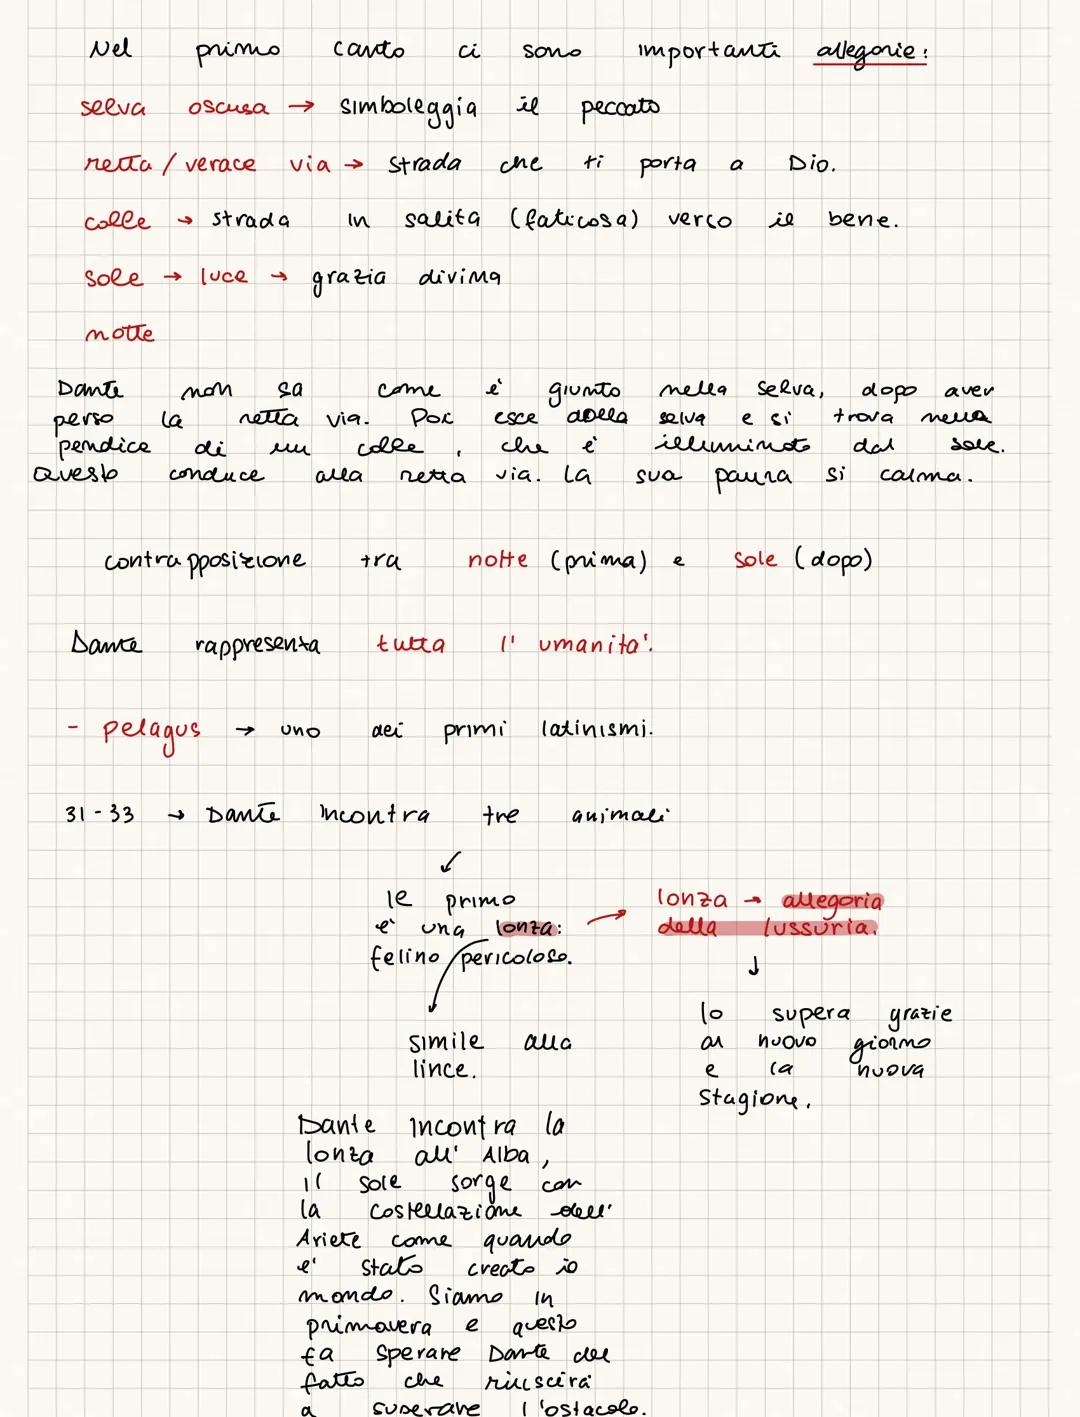 Nel primo canto ci sono importanti allegorie:
selva oscura → simboleggia il peccato
retta / verace via → strada che ti porta a Dio.
colle → strada in salita (faticosa) verso il bene.
sole → luce → grazia divina
notte
Dante non sa come è giunto nella selva, dopo aver
perso la retta via. Poi esce dalla selva e si trova nella
pendice di un colle, che è illuminato dal sole.
Questo conduce alla retta via. La sua paura si calma.
contrapposizione tra notte (prima) e sole (dopo)
Dante rappresenta tutta l'umanita'.
- pelagus → uno dei primi latinismi.
31-33 → Dante incontra tre animali
le primo
e' una lonza:
felino pericoloso.
lonza → allegoria
della lussuria.
simile alla
lince.
lo supera grazie
al nuovo giorno
e la nuova
stagione.
Dante incontra la
lonza all'Alba,
il sole sorge con
la costellazione dell'
Ariete come quando
e' stato creato io
mondo. Siamo in
primavera e questo
fa sperare Dante del
fatto che riuscirà
a superare l'ostacolo.